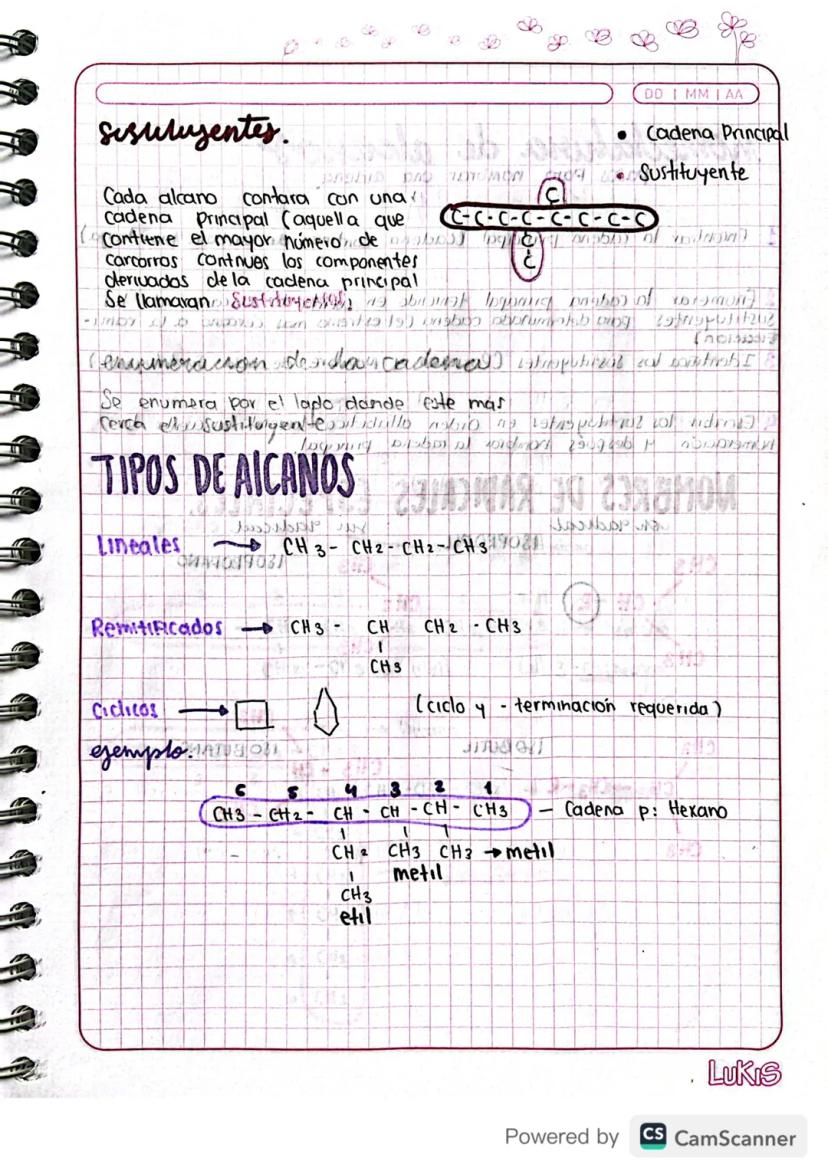 DD | MM | AA
Sustituyentes.
• Cadena Principal
• Sustituyente
Cada alcano contara con una
cadena principal (aquella que
contiene el mayor número de
carcorros continues los componentes
derivados de la cadena principal
Se llamaran Sustituyentes.
C
C-C-C-C-C-C-C-C
C
C
(enumeracion de la cadena)
Se enumera por el lado donde este mas
cerca el sustituyente
TIPOS DE AlCANOS
Lineales → CH3- CH2- CH2-CH3
Remitificados → CH3 - CH CH2 - CH3
CH3
Ciclicos → (ciclo y - terminación requerida)
ejemplo:
6 5 4 3 2 1
CH3 - CH2 - CH - CH - CH - CH3 — Cadena p: Hexano
CH2 CH3 CH3 → metil
metil
CH3
etil
LUKIS
Powered by CS CamScanner